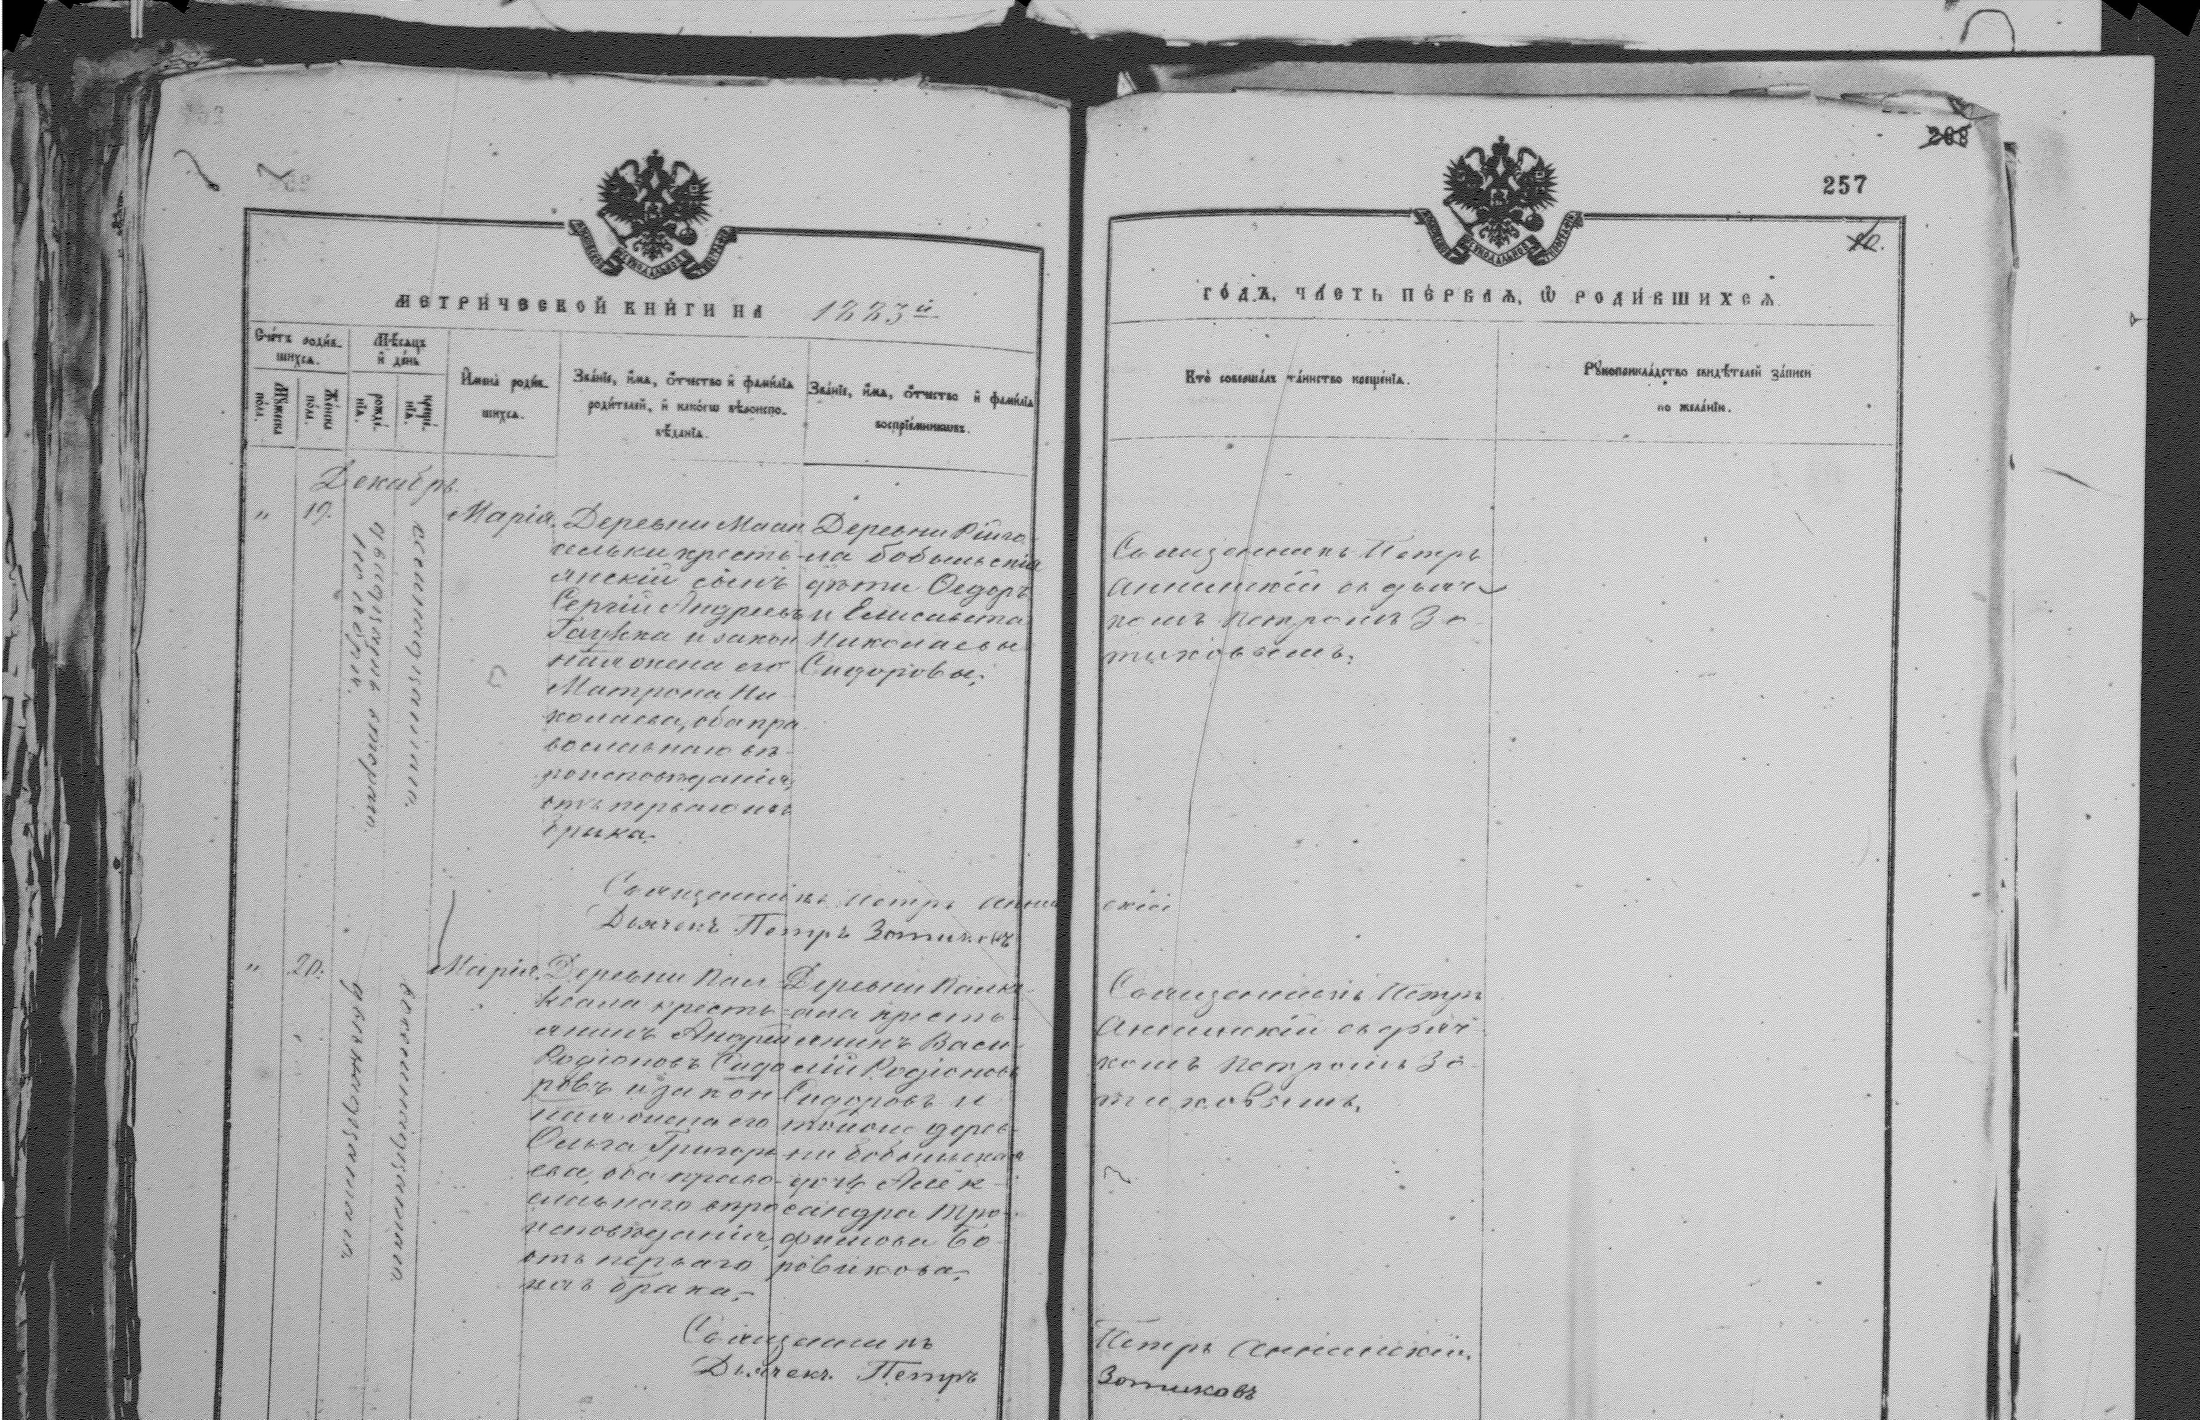 257
МЕТРИ́ЧЕСКОЙ КНИ́ГИ НА 1883й
ГО́ДЪ, ЧА́СТЬ ПЕ́РВАЯ, Ѡ РОДИ́ВШИХСЯ
Сче́тъ роди́в-
шихся.
Му́жеска по́ла.
Же́нска по́ла.
Мѣ́сяцъ
и҆ де́нь
рожде́-
нїя.
креще́-
нїя.
И҆мена̀ роди́в-
шихся.
Зва́нїе, и҆́мя, ѻ҆́тчество и҆ фами́лїя
роди́телей, и҆ како́гѡ вѣроиспо-
вѣ́данїя.
Зва́нїе, и҆́мя, ѻ҆́тчество и҆ фами́лїя
воспрїе́мникѡвъ.
Кто̀ соверша́лъ та́инство креще́нїя.
Рꙋкоприкла́дство свидѣ́телей за́писи
по жела́нїю.
Декабрь.
" 19.
Марія.
Деревни Маан
сельки кресть-
янскій сынъ
Сергій Андреевъ
и закон
ная жена его
Матрона Ни
колаева, оба пра
вославнаго вѣ-
роисповѣданія,
отъ перваго ихъ
брака.
Деревни
ла бобыльскія
дѣти Ѳедоръ
и Елисавета
Николаевы
Сидоровы.
Священникъ Петръ
Аннинскій съ дьяч-
комъ Петромъ Зо-
тиковымъ.
Священникъ Петръ Аннинскій
Дьячекъ Петръ Зотиковъ
" 20.
двѣнадцатаго
восемнадцатаго
Марія.
Деревни
кресть-
янинъ Андрей
Родіоновъ Сидо
ровъ и закон
ная жена его
Ольга Григорь
ева, оба право-
славнаго вѣро
исповѣданія,
отъ перваго
ихъ брака.
Деревни
ала кресть-
янинъ Васи-
лій Родіоновъ
Сидоровъ и
тойже дерев-
ни бобыльская
дочь Алек-
сандра Тро-
фимова Бо-
ровикова.
Священникъ Петръ
Аннинскій съ дьяч-
комъ Петромъ Зо-
тиковымъ.
Священникъ Петръ Аннинскій.
Дьячекъ Петръ Зотиковъ